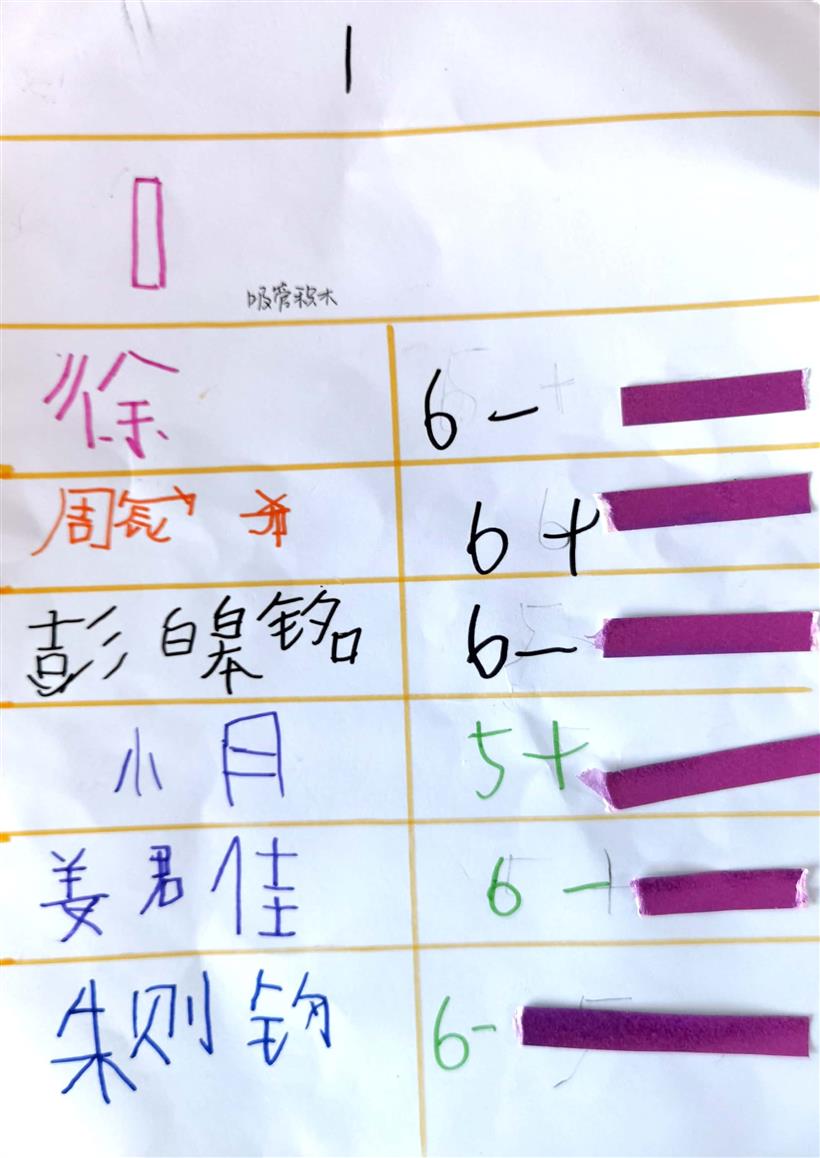 1
吸管积木
徐 6 -
周 6 +
彭皞铭 6 -
小月 5 +
姜君佳 6 -
朱则钧 6 -